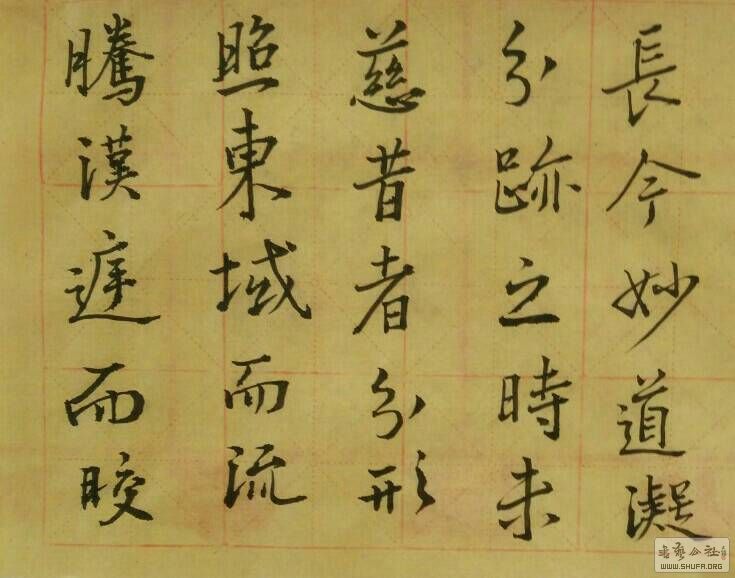 騰漢庭而晈
照東域而流
慈昔者分形
分跡之時未
長今妙道凝
书艺公社
WWW.SHUFA.ORG